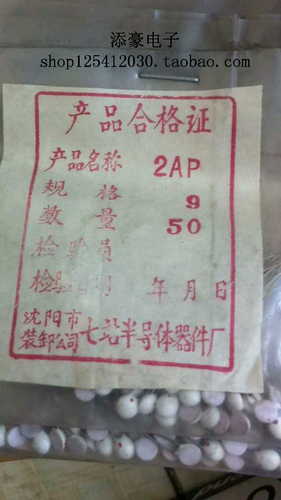 添豪电子
shop125412030.taobao.com
产品合格证
产品名称 2AP
规格 9
数量 50
检验员
检验日期 年月日
沈阳市
装卸公司 七站半导体器件厂